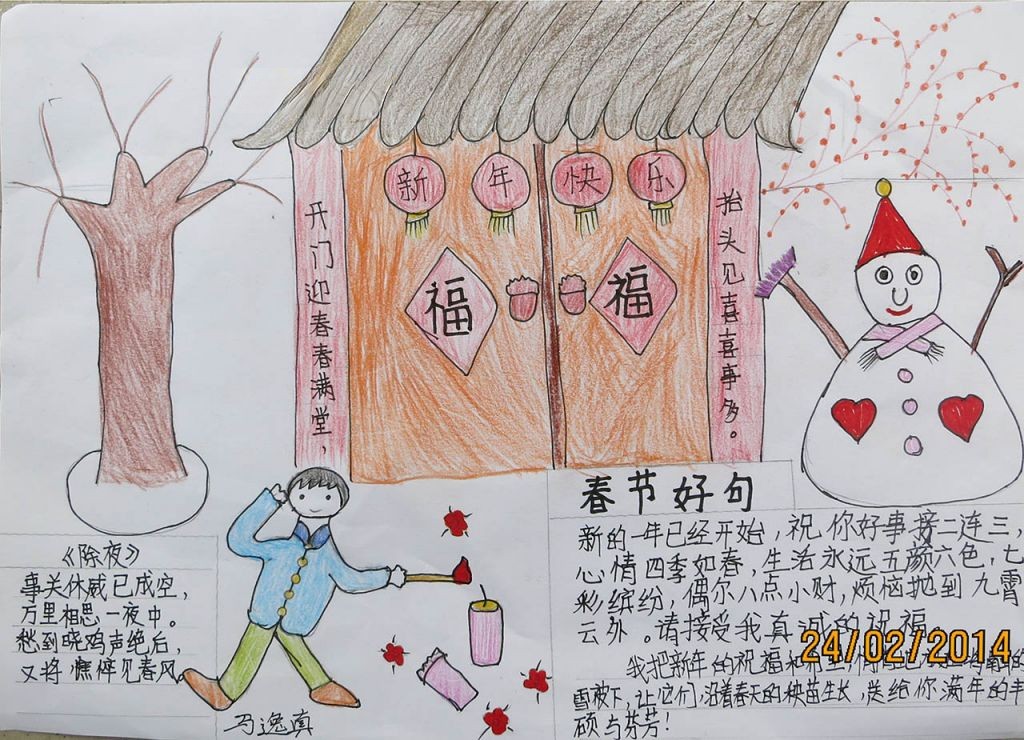 新年快乐
福 福
开门迎春春满堂，
抬头见喜喜事多。
《除夜》
事关休戚已成空，
万里相思一夜中。
愁到晓鸡声绝后，
又将憔悴见春风。
马逸真
春节好句
新的一年已经开始，祝你好事接二连三，
心情四季如春，生活永远五颜六色，七
彩缤纷，偶尔八点小财，烦恼抛到九霄
云外。请接受我真诚的祝福。
我把新年的祝福和
雪被下，让它们沿着春天的秧苗生长，送给你满年的丰
硕与芬芳！
24/02/2014